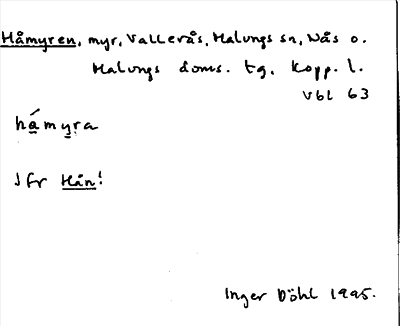 Håmyren, myr, Vallerås, Malungs sn, Nås o.
Malungs doms. tg, Kopp. l.
Vbl 63
há̱my̱ra
Jfr Hån!
Inger Döhl 1995.